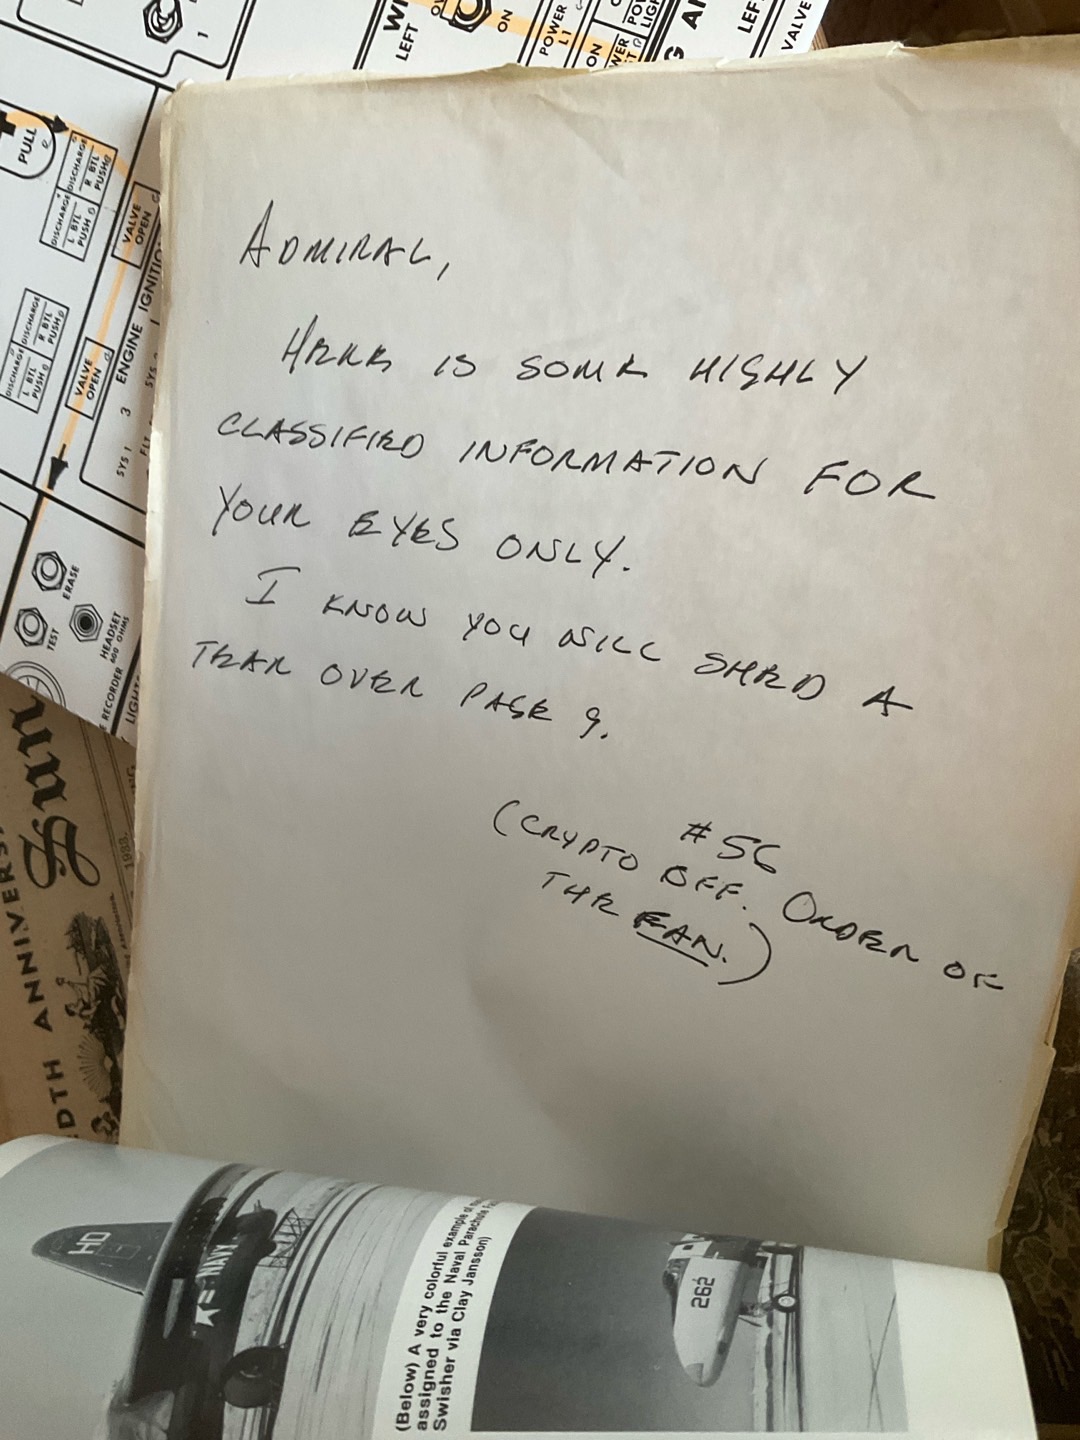 ADMIRAL,
HERE IS SOME HIGHLY
CLASSIFIED INFORMATION FOR
YOUR EYES ONLY.
I KNOW YOU WILL SHED A
TEAR OVER PAGE 9.
#56
(CRYPTO OFF. ORDER OF
THE FAN.)
LEFT
ON
POWER
L1
ON
LEFT
VALVE
PULL
DISCHARGE
L BTL
PUSH
DISCHARGE
R BTL
PUSH
VALVE
OPEN
DISCHARGE
L BTL
PUSH
DISCHARGE
R BTL
PUSH
VALVE
OPEN
ENGINE IGNITION
SYS 1
3
ERASE
TEST
HEADSET
600 OHMS
RECORDER
Sun
1933
HD
NAVY
(Below) A very colorful example of
assigned to the Naval Parachute
Swisher via Clay Jansson)
262